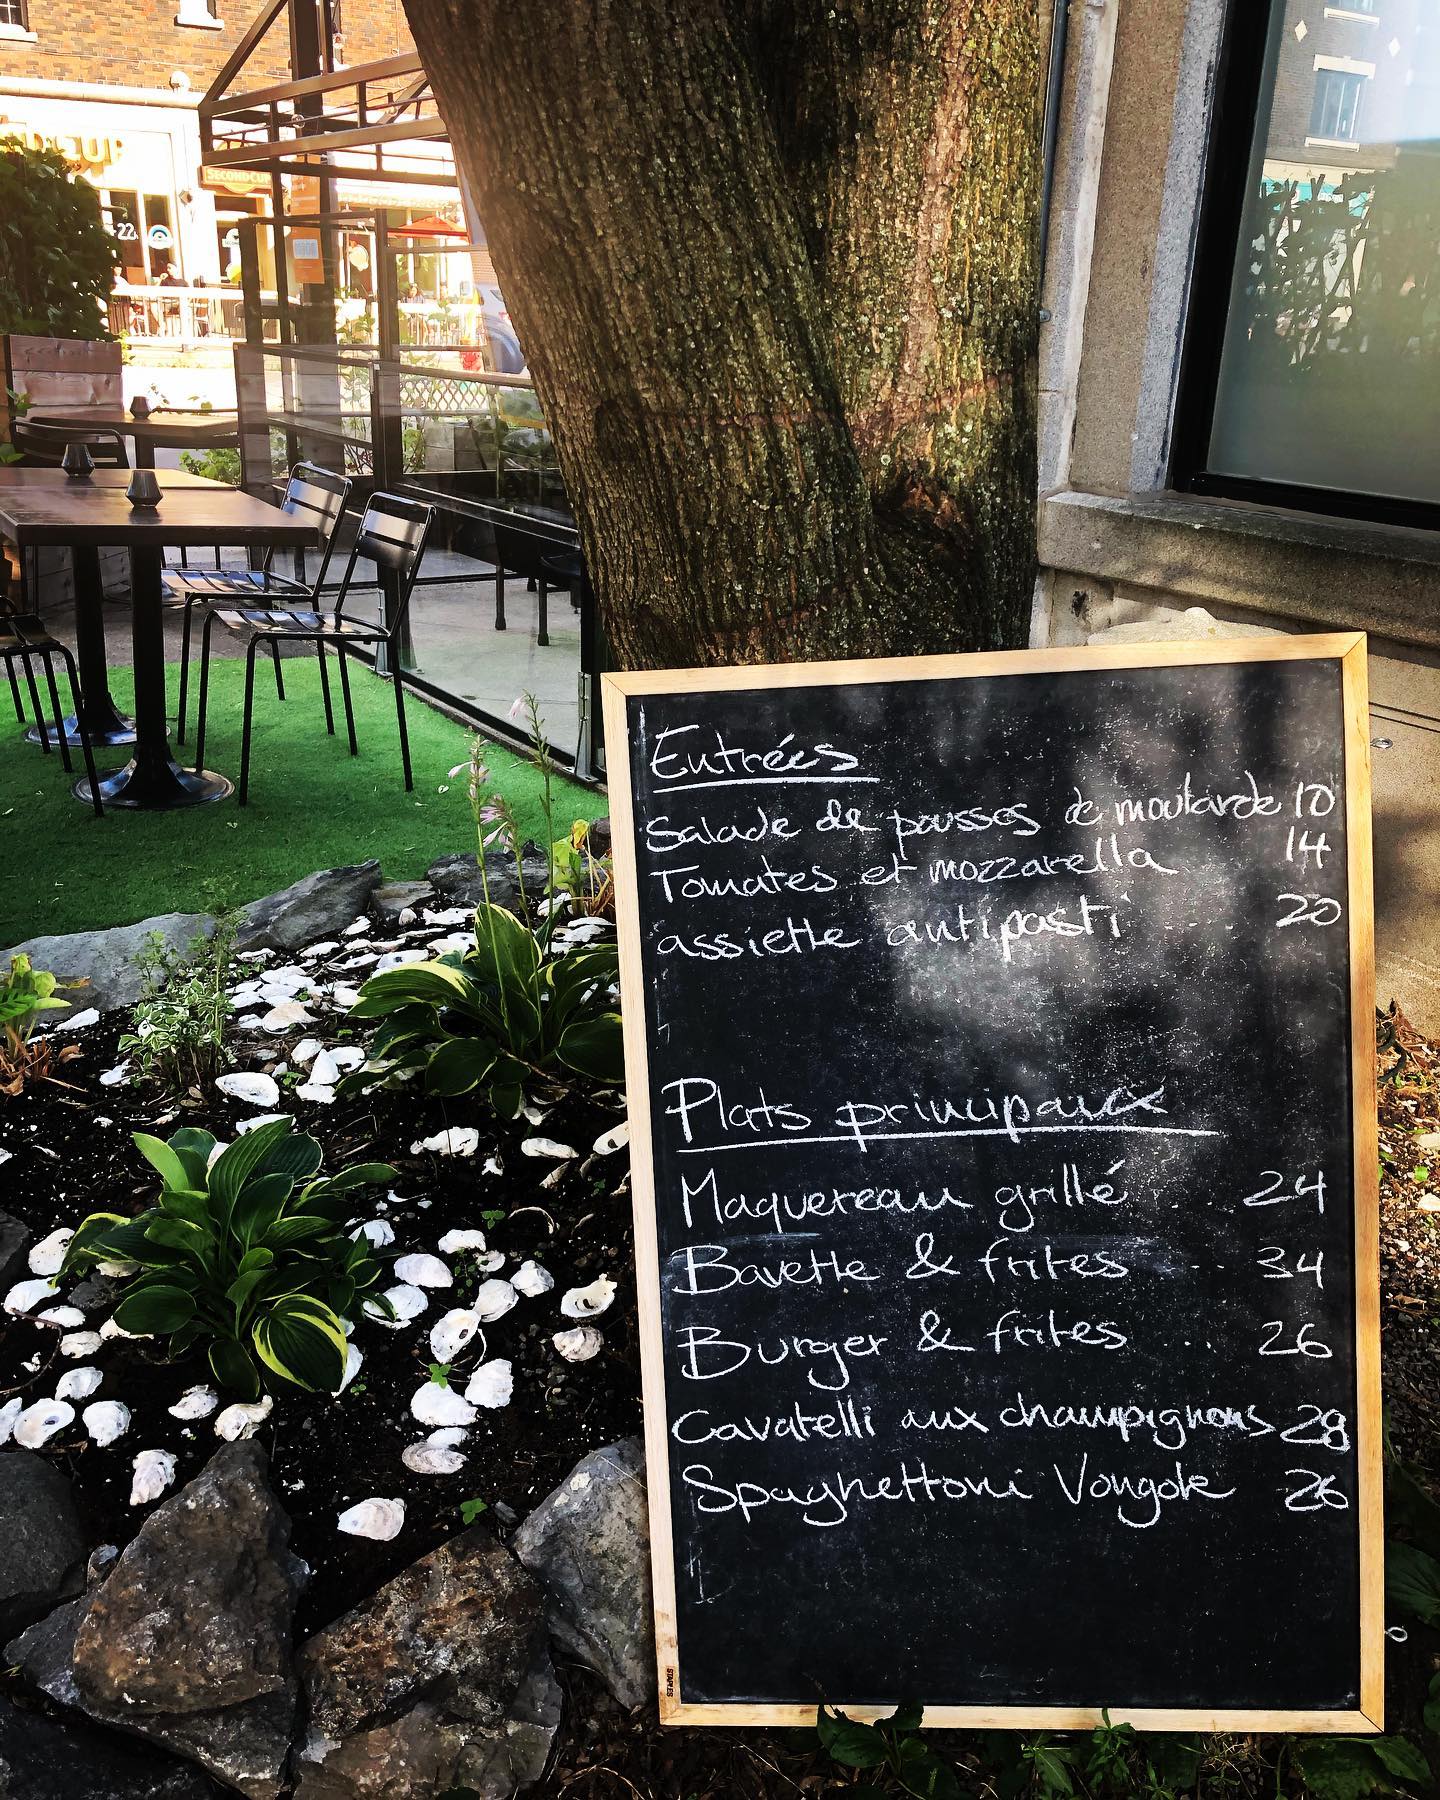 SECOND CUP
22
Entrées
Salade de pousses de moutarde 10
Tomates et mozzarella 14
assiette antipasti .... 20
Plats principaux
Maquereau grillé ... 24
Bavette & frites ... 34
Burger & frites ... 26
Cavatelli aux champignons 28
Spaghettoni Vongole 26
STAPLES